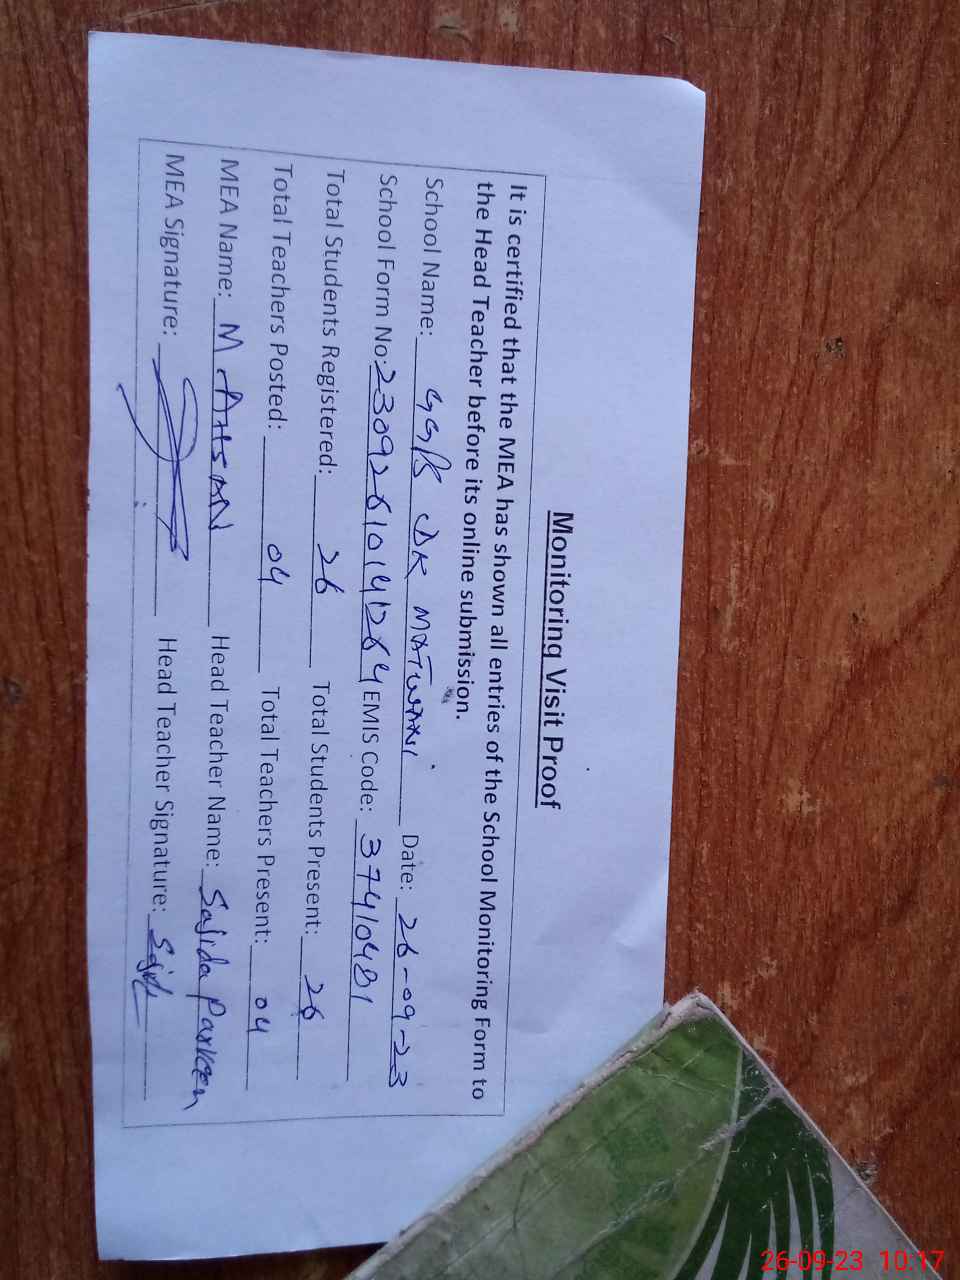 Monitoring Visit Proof
It is certified that the MEA has shown all entries of the School Monitoring Form to
the Head Teacher before its online submission.
School Name: GGPS DK MATWANI Date: 26-09-23
School Form No: 2309261014 EMIS Code: 37410481
Total Students Registered: 26 Total Students Present: 26
Total Teachers Posted: 04 Total Teachers Present: 04
MEA Name: M. AHSAN Head Teacher Name: Sajida Parveen
MEA Signature: Head Teacher Signature: Sajida
26-09-23 10:17